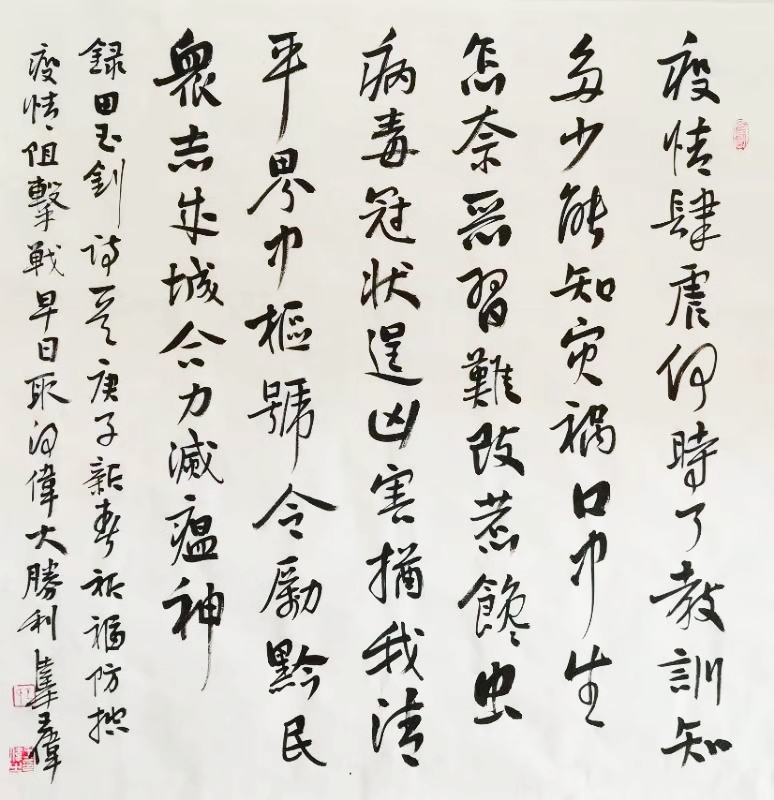 疫情肆震何時了教訓知
多少能知灾禍口中生
怎奈恶習難改惹饞虫
病毒冠状逞凶害我清
平界中樞號令勵黔民
衆志成城合力滅瘟神
録田玉釗詩一首庚子新春祈福防控
疫情阻擊戰早日取得偉大勝利